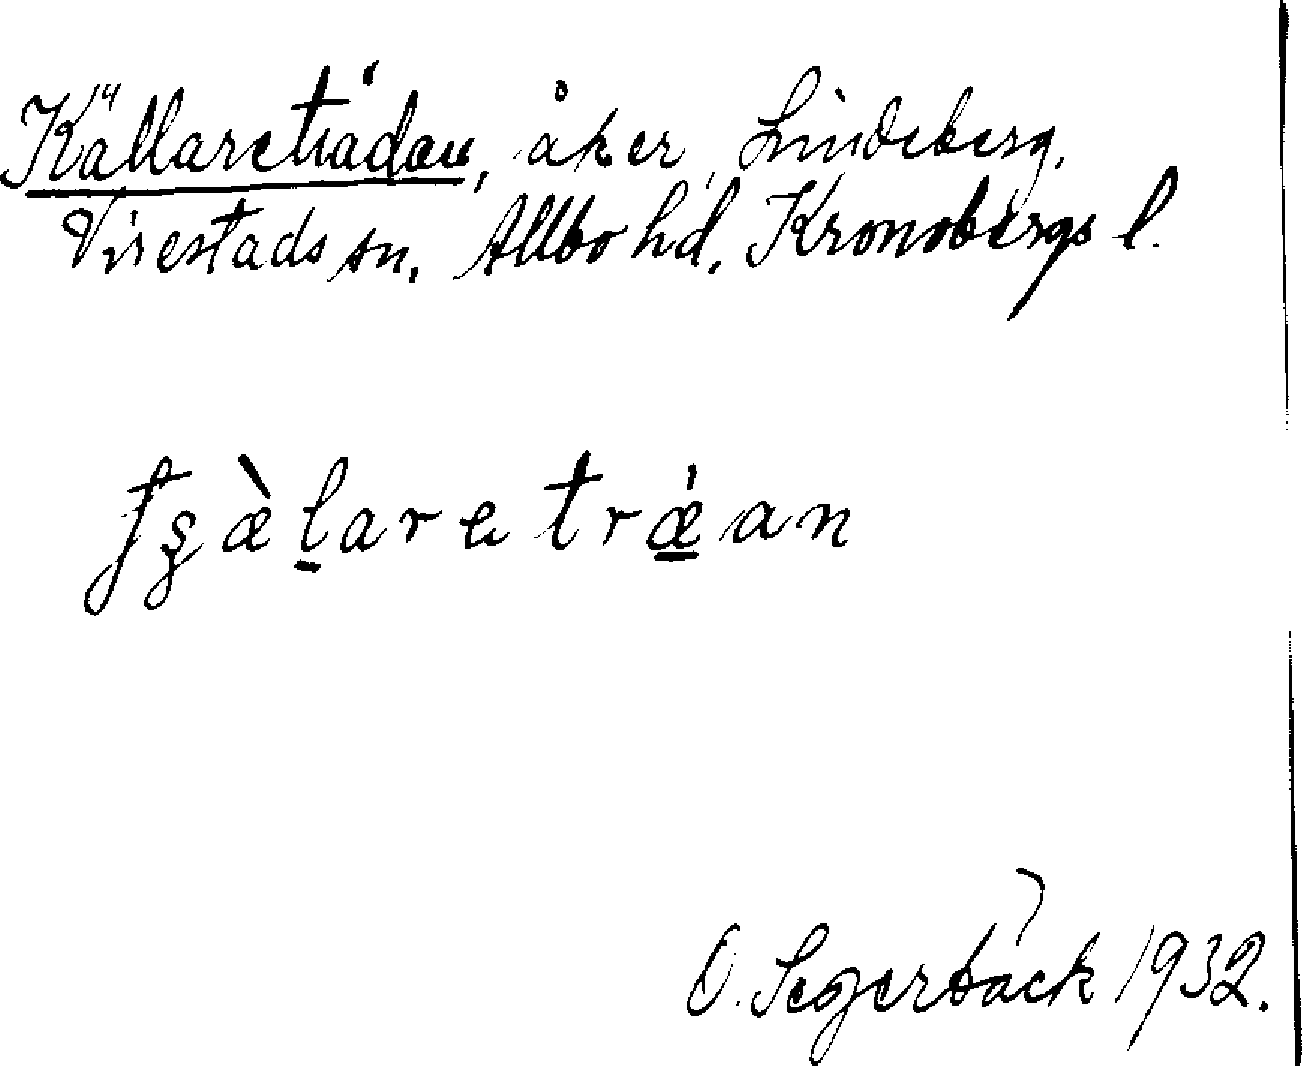 Källareträdan, åker, Lindeberg,
Virestads sn, Allbo hd, Kronobergs l.
tʂæ̀l̠aretrǽ̠an
O. Segerbäck 1932.